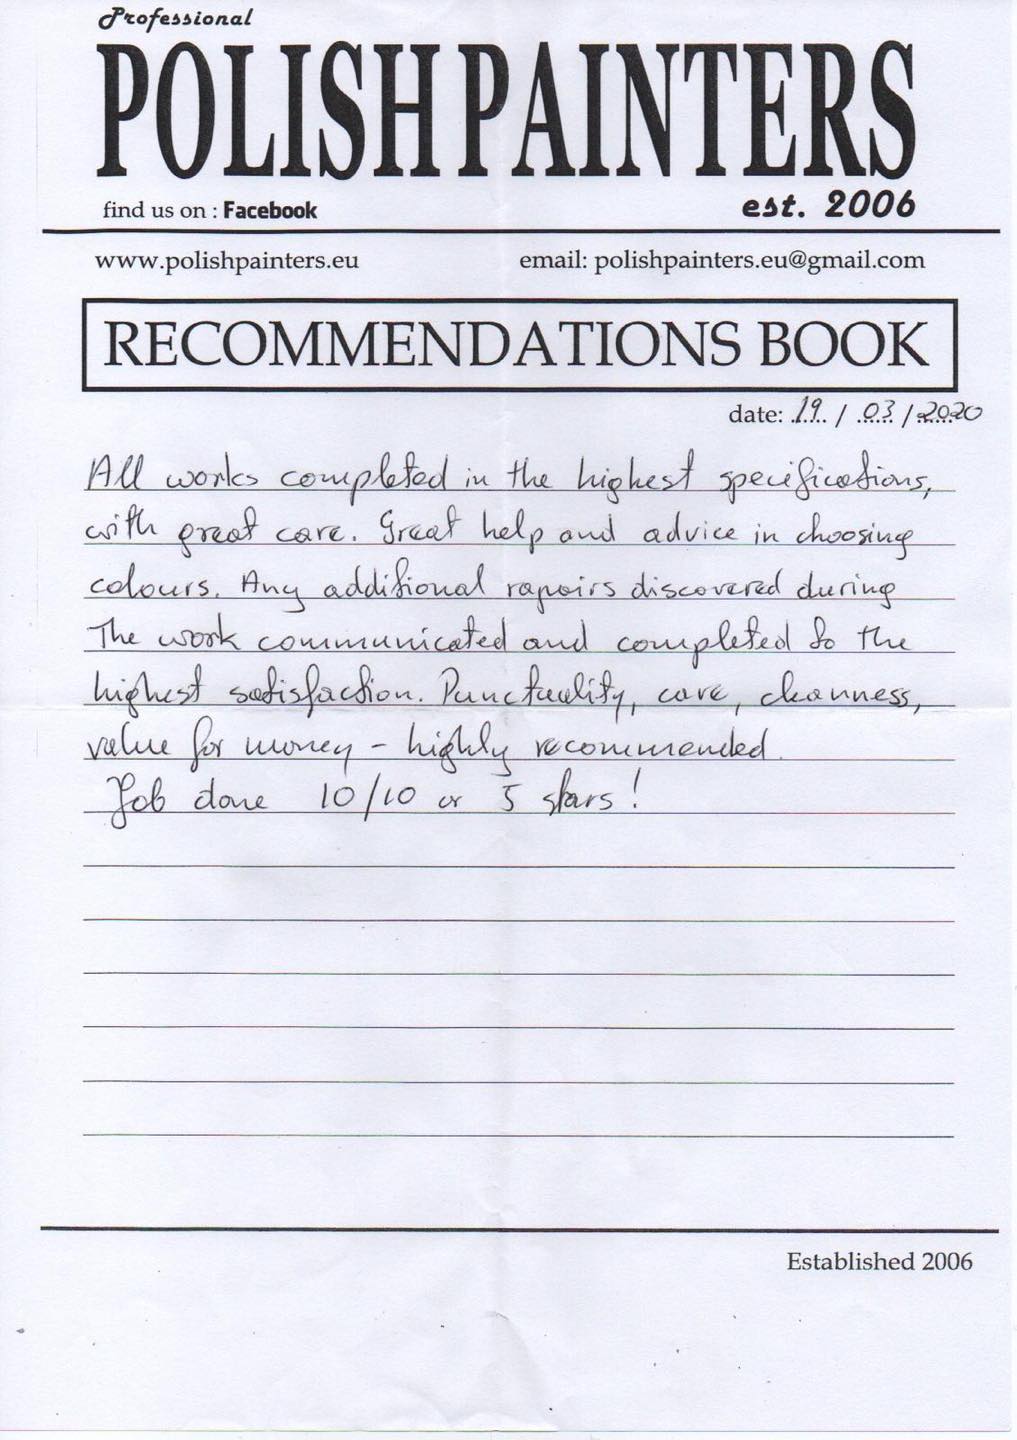 Professional
POLISH PAINTERS
find us on : Facebook
est. 2006
www.polishpainters.eu
email: polishpainters.eu@gmail.com
RECOMMENDATIONS BOOK
date: 19 / 03 / 2020
All works completed in the highest specifications,
with great care. Great help and advice in choosing
colours. Any additional rapairs discovered during
The work communicated and completed to the
highest satisfaction. Punctuality, care, cleanness,
value for money – highly recommended.
Job done 10/10 or 5 stars!
Established 2006